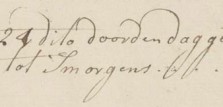 24 dito doorden dagge
tot Smorgens . . .